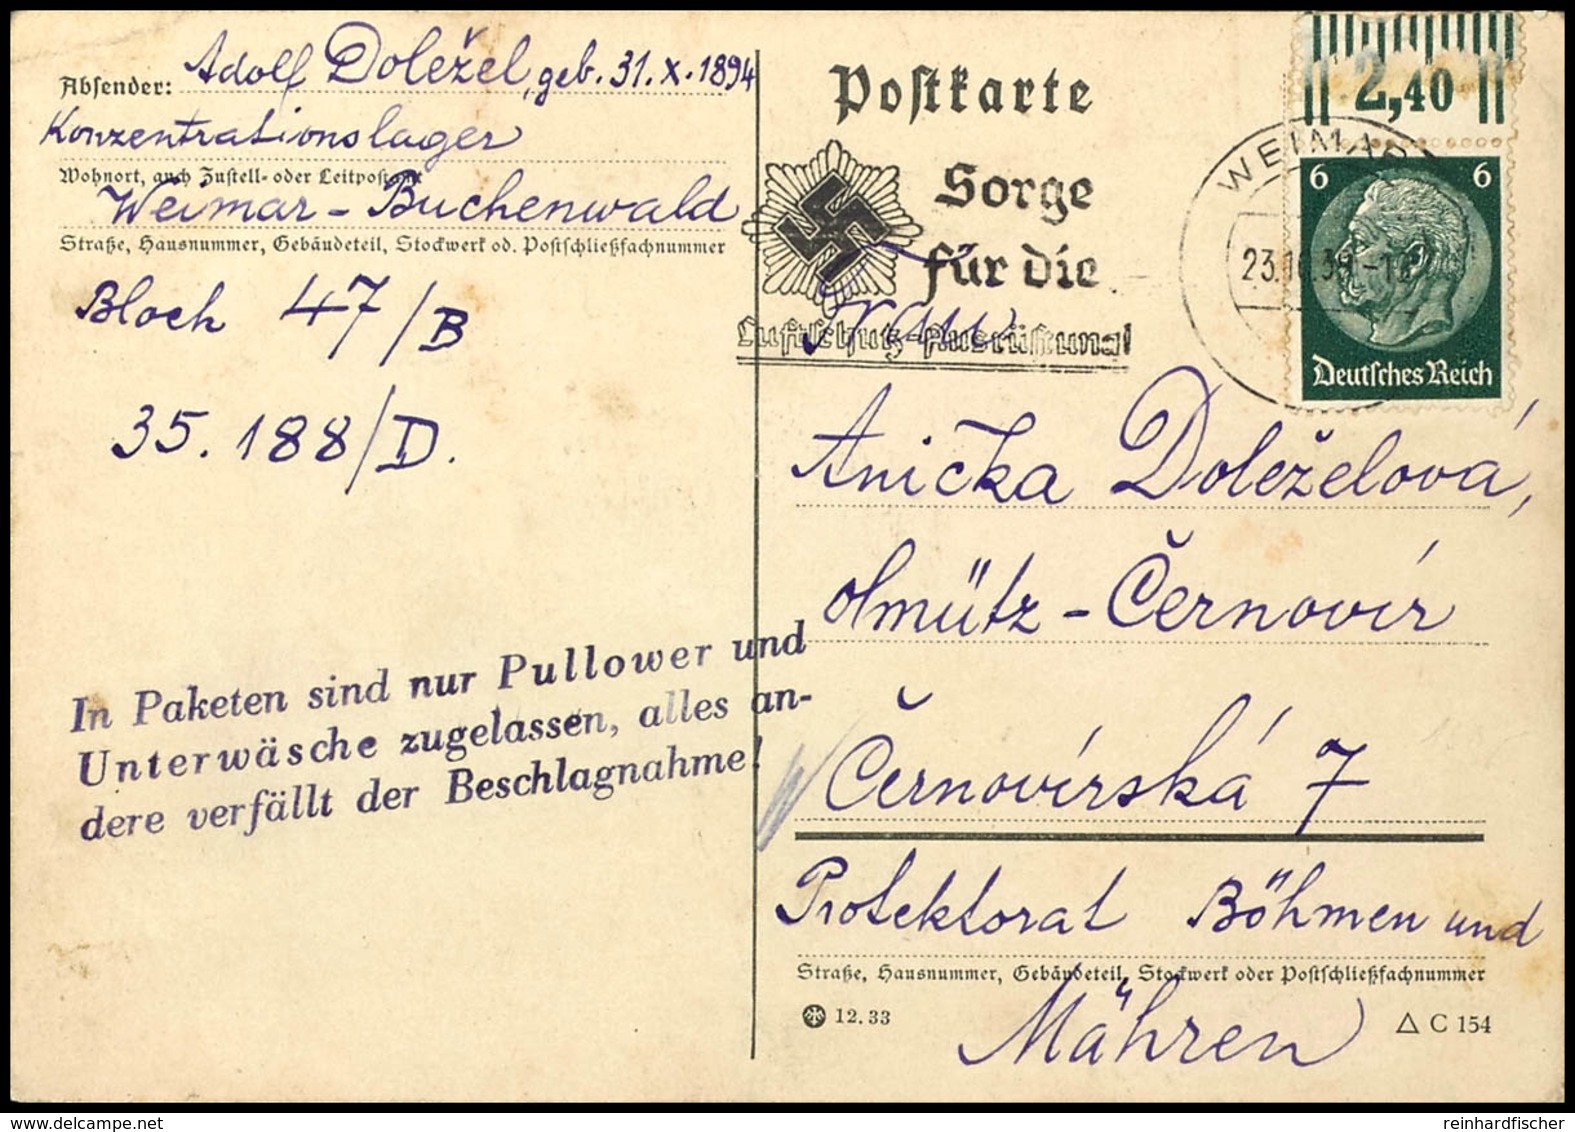 Absender: Adolf Doležel, geb. 31.X.1894
Konzentrationslager
Wohnort, auch Zustell- oder Leitpostamt
Weimar - Buchenwald
Straße, Hausnummer, Gebäudeteil, Stockwerk od. Postschließfachnummer
Block 47/B
35.188/D.
In Paketen sind nur Pullower und
Unterwäsche zugelassen, alles an-
dere verfällt der Beschlagnahme!
Postkarte
Sorge
für die
Luftschutz-Ausrüstung!
2,40
WEIMAR
6 6
Deutsches Reich
Frau
Anička Doleželová,
Olmütz - Černovír
Černovírská 7
Protektorat Böhmen und
Straße, Hausnummer, Gebäudeteil, Stockwerk oder Postschließfachnummer
Mähren
12.33
C 154
reinhardfischer